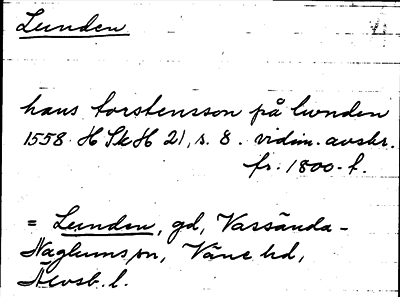 Lunden
hans torstensson på lunden
1558 H Sk H 21, s. 8. vidim. avskr.
fr. 1800-t.
= Lunden, gd, Vassända-
Naglums sn, Väne hd,
Älvsb. l.